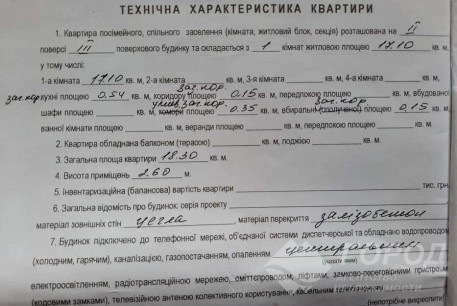 ТЕХНІЧНА ХАРАКТЕРИСТИКА КВАРТИРИ
1. Квартира посімейного, спільного заселення (кімната, житловий блок, секція) розташована на II
поверсі III поверхового будинку та складається з 1 кімнат житловою площею 17.10 кв. м,
у тому числі:
1-а кімната 17.10 кв. м, 2-а кімната кв. м, 3-я кімната кв. м, 4-а кімната кв. м,
заг. кор. заг. кор.
кухні площею 0.54 кв. м, коридору площею 0.15 кв. м, передпокою площею кв. м, вбудованої
умив. заг. кор. заг. кор.
шафи площею кв. м, комори площею 0.35 кв. м, вбиральні (сполученої) площею 0,15 кв. м,
ванної кімнати площею кв. м, веранди площею кв. м, передпокою площею кв. м.
2. Квартира обладнана балконом (терасою) кв. м, лоджією кв. м.
3. Загальна площа квартири 18.30 кв. м.
4. Висота приміщень 2.60 м.
5. Інвентаризаційна (балансова) вартість квартири тис. грн.
6. Загальна відомість про будинок: серія проекту
матеріал зовнішніх стін цегла матеріал перекриття залізобетон
7. Будинок підключено до телефонної мережі, об'єднаної системи диспетчерської та обладнано водопроводом
(холодним, гарячим), каналізацією, газопостачанням, опаленням центральним
(указати яким)
електроосвітленням, радіотрансляційною мережею, сміттєпроводом, ліфтами, замково-переговорними пристроями
(кодовими замками), телевізійною антеною колективного користування, кабельним телебаченням
(непотрібне викреслити)